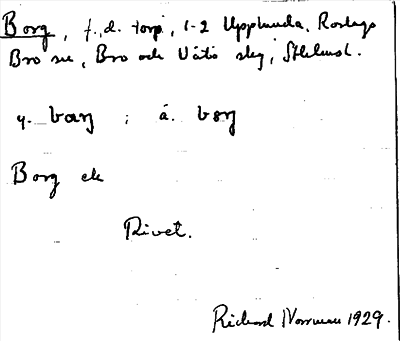 Borg, f.d. torp, 1-2 Upplunda, Roslags
Bro sn, Bro och Vätö skg, Sthlms l.
y. bɑrj ; ä. bɔrj
Borg ek
Rivet.
Richard Norrman 1929.